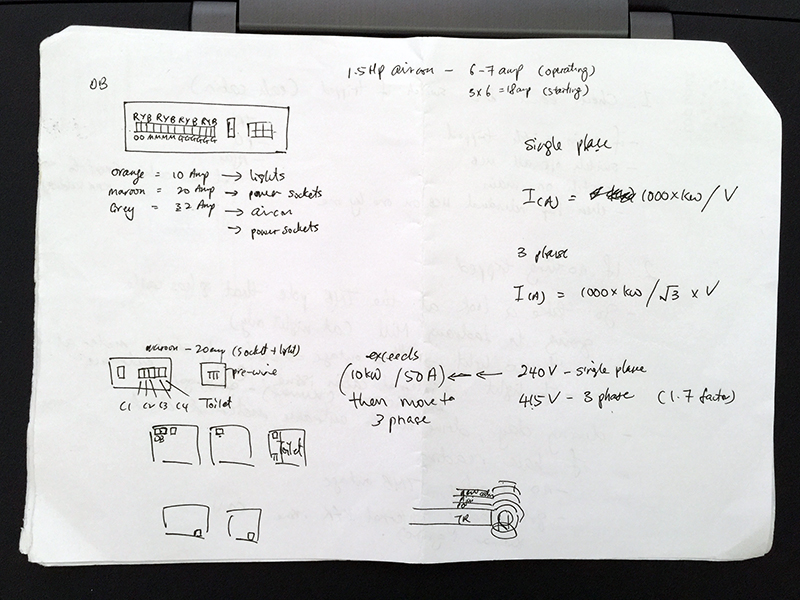 DB
1.5Hp aircon - 6-7 amp (operating)
3x6 = 18amp (starting)
RYB RYB RYB RYB
OO MMMM GGGGGG
Orange = 10 Amp → lights
maroon = 20 Amp → power sockets
Grey = 32 Amp → aircon
→ power sockets
single phase
I(A) = 1000 x kw / V
3 phase
I(A) = 1000 x kw / √3 x V
maroon - 20 amp (socket + light)
pre-wire
C1 C2 C3 C4 Toilet
exceeds
(10kw / 50A) ← ← 240V - single phase
then move to 415V - 3 phase (1.7 factor)
3 phase
DB
Toilet
TR